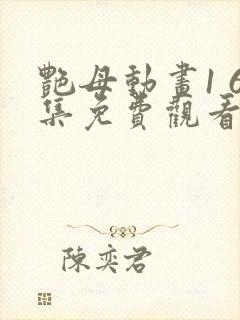 艷母動畫16
集免費觀看
陳奕君